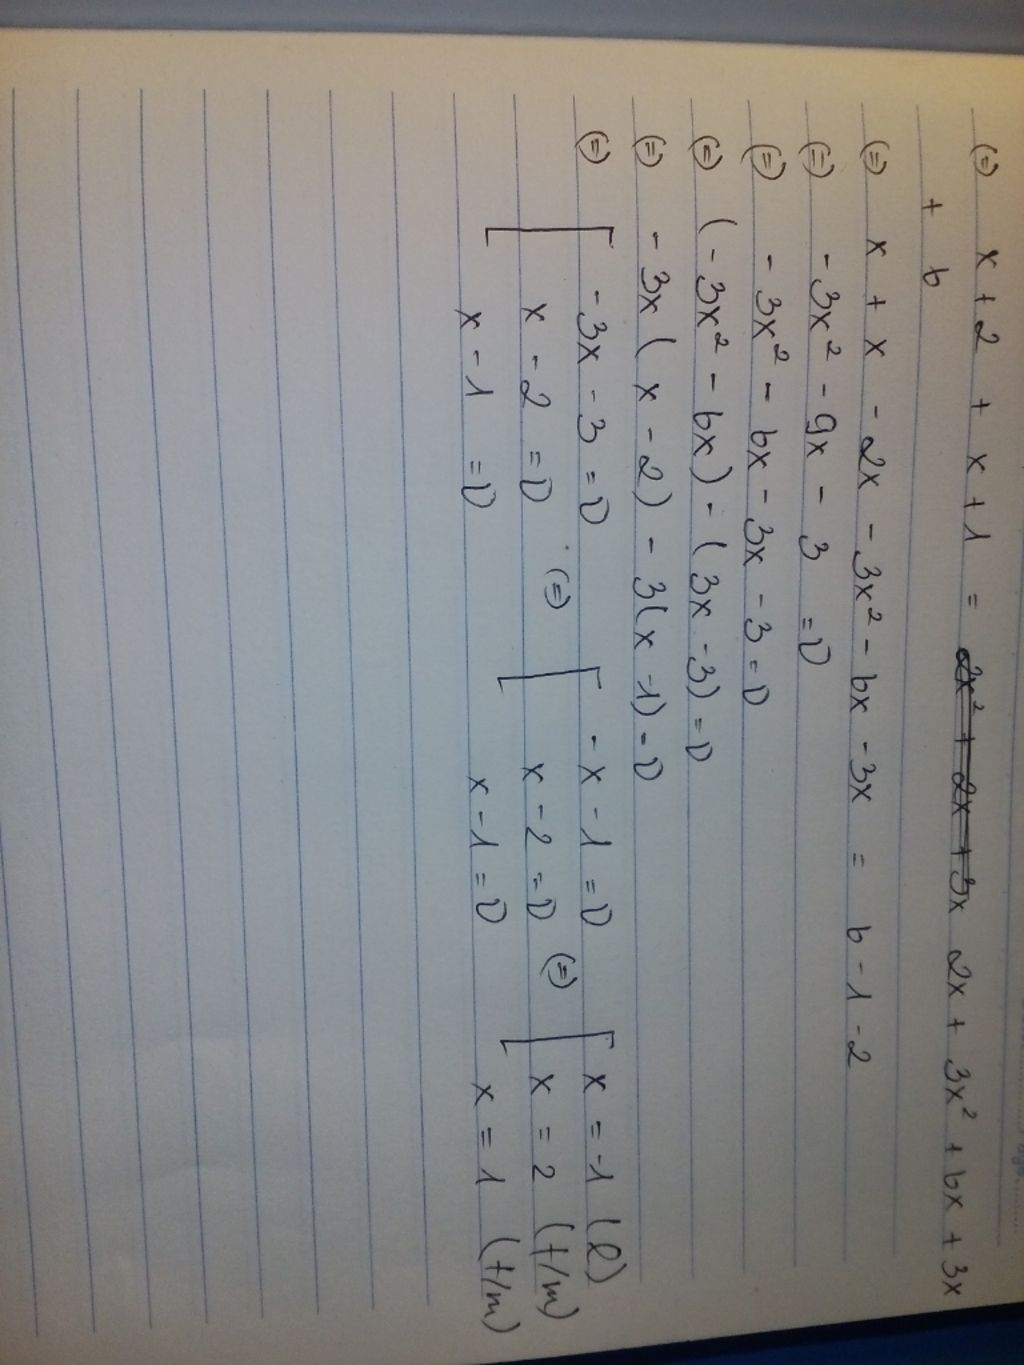 (=) x + 2 + x + 1 = 2x² + 2x + 3x 2x + 3x² + 6x + 3x
+ 6
(=) x + x - 2x - 3x² - 6x - 3x = 6 - 1 - 2
(=) - 3x² - 9x - 3 = 0
(=) - 3x² - 6x - 3x - 3 = 0
(=) (- 3x² - 6x) - (3x - 3) = 0
(=) - 3x (x - 2) - 3(x - 1) = 0
(=) [ - 3x - 3 = 0 [ - x - 1 = 0 [ x = -1 (l)
x - 2 = 0 (=) x - 2 = 0 (=) x = 2 (t/m)
x - 1 = 0 x - 1 = 0 x = 1 (t/m)